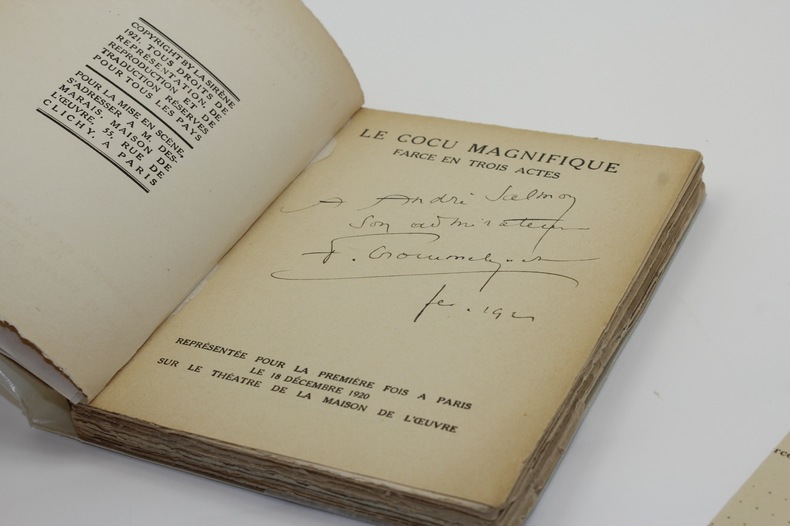 COPYRIGHT BY LA SIRÈNE
1921. TOUS DROITS DE
REPRÉSENTATION, DE
REPRODUCTION ET DE
TRADUCTION RÉSERVÉS
POUR TOUS LES PAYS
POUR LA MISE EN SCÈNE,
S'ADRESSER A M. DES-
MARAIS, MAISON DE
L'ŒUVRE, 55, RUE DE
CLICHY, A PARIS
LE COCU MAGNIFIQUE
FARCE EN TROIS ACTES
A André Salmon
Son admirateur
F. Crommelynck
fev. 1921
REPRÉSENTÉE POUR LA PREMIÈRE FOIS A PARIS
LE 18 DÉCEMBRE 1920
SUR LE THÉATRE DE LA MAISON DE L'ŒUVRE